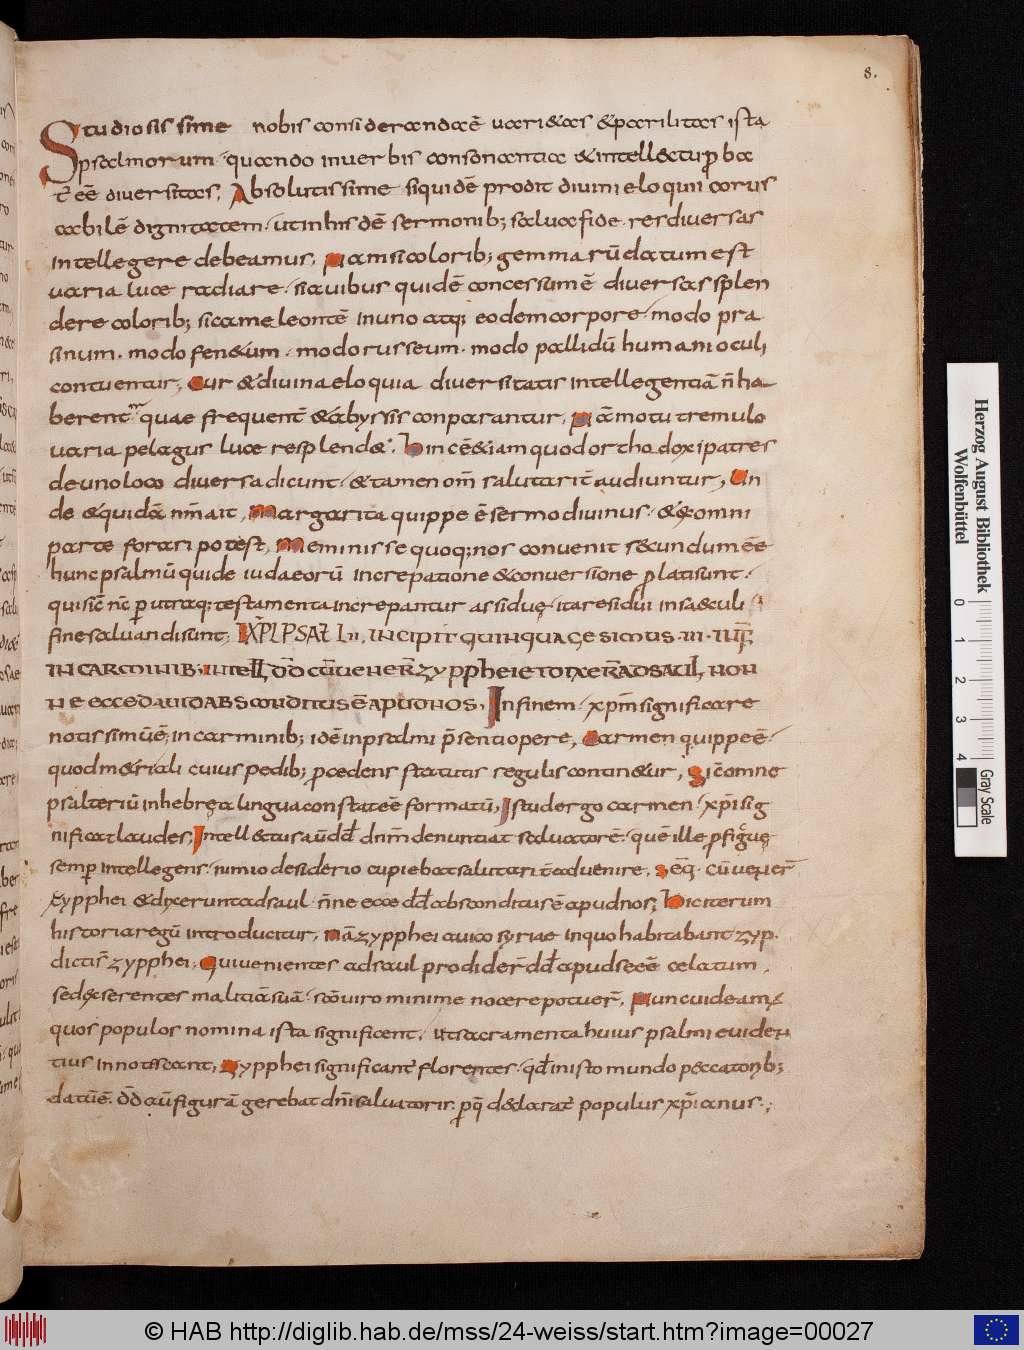 8.
Studiosissime nobis considerandaē uari&as &parilitas ista
psalmorum · quando inuerbis consonantia &intell&tu ꝓba
t̄ eē diuersitas, Absolutissime siquidē prodit diuini eloquii corus
cabilē dignitatem · ut inhisdē sermonib; salua fide · res diuersas
intellegere debeamus, Nam si colorib; gemmarū datum est
uaria luce radiare · siauibus quidē concessum ē diuersas splen
dere colorib; si cameleontē in uno atq; eodem corpore · modo pra
sinum · modo fen&um · modo russeum · modo pallidū humani oculi
contuentur, Cur &diuina eloquia diuersitatis intellegentiā n̄ ha
berent quae frequent̄ &abyssis conparantur, Nā motu tremulo
uaria pelagus luce resplend& · hinc ē &iam quod orthodoxi patres
de uno loco diuersa dicunt · &tamen om̄ salutarit̄ audiuntur, Un
de &quidā nr̄m ait, Margarita quippe ē sermo diuinus · &ex omni
parte forari potest, Meminisse quoq; nos conuenit secundum eē
hunc psalmū qui de iudaeorū increpatione &conuersione ꝓlati sunt ·
qui sic̄ nc̄ p̄ utraq; testamenta increpantur assidue · ita residui in saeculi
fine saluandi sunt; EXPL PSAL LII, INCIPIT QUINQUAGESIMUS · III · IN F̄
IN CARMINIB; INTELL D̄D CŪ UENER̄ ZYPPHEI ET DIXER̄ AD SAUL, NON
NE ECCE DAUID ABSCONDITUS Ē APUD NOS, In finem · xp̄m significare
notissimū ē; in carminib; idē in psalmi p̄senti opere, Carmen quippe ē ·
quod m&riali cuius pedib; p̄cedens statutis regulis contin&ur, Sic̄ omne
psalteriū in hebręa lingua constat eē formatū, Istud ergo carmen · xp̄i sig
nificat laudes, Intell&tus aū dd̄ dn̄m denuntiat saluatorē · quē ille ꝓ figuę
semp̄ intellegens · nimio desiderio cupiebat salutarit̄ aduenire, Seq̄ · cū uener̄
zypphei &dixerunt adsaul · n̄ne ecce dd̄ absconditus ē apud nos; Hic iterum
historia regū introducitur, Nā zypphei a uico syriae in quo habitabant zyp̄ ·
dicti s̄ zypphei · Qui uenientes ad saul prodider̄ dd̄ apud se eē celatum ·
sed exserentes malitiā suā · sc̄o uiro minime nocere potuer̄, Nunc uideam̄
quos populos nomina ista significent · ut sacramenta huius psalmi euiden
tius innotescant, Zypphei significant̄ florentes · qd̄ in isto mundo peccatorib;
datū ē · d̄d aū figurā gerebat dn̄i saluatoris · p̄ qē declarat̄ populus xp̄ianus · ;
Herzog August Bibliothek
Wolfenbüttel
0 1 2 3 4
Gray Scale
© HAB http://diglib.hab.de/mss/24-weiss/start.htm?image=00027